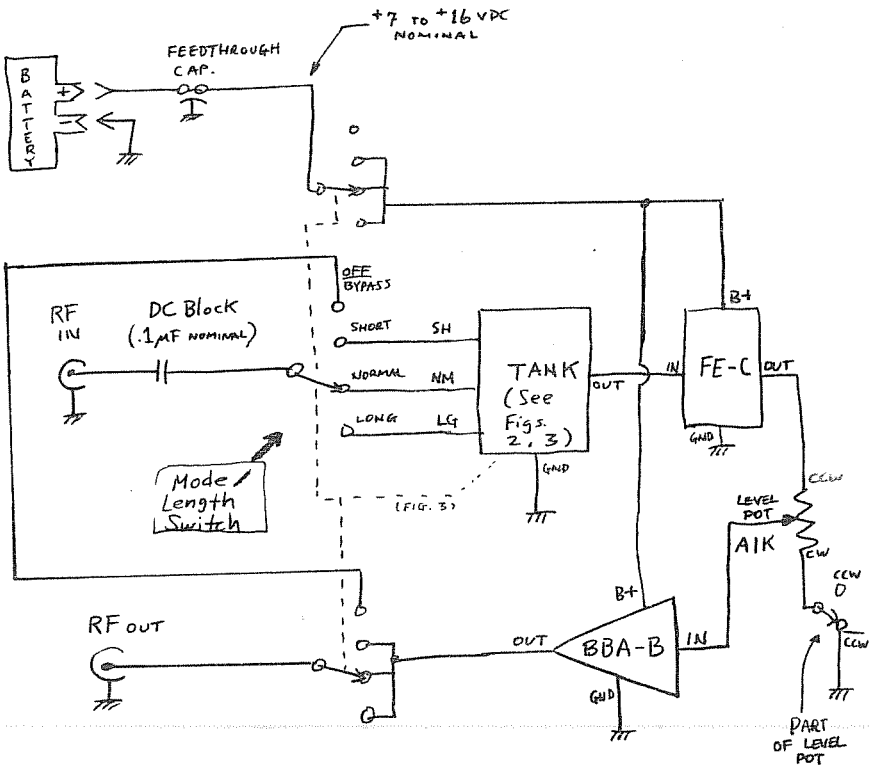 +7 TO +16 VDC
NOMINAL
FEEDTHROUGH
CAP.
BATTERY
+
-
OFF
BYPASS
RF
IN
DC Block
(.1µF NOMINAL)
SHORT
SH
NORMAL
NM
LONG
LG
TANK
(See
Figs.
2, 3)
OUT
GND
IN
FE-C
B+
OUT
GND
Mode/
Length
Switch
(FIG. 3)
CCW
LEVEL
POT
A1K
CW
CCW
O
CCW
B+
RF OUT
OUT
BBA-B
IN
GND
PART
OF LEVEL
POT